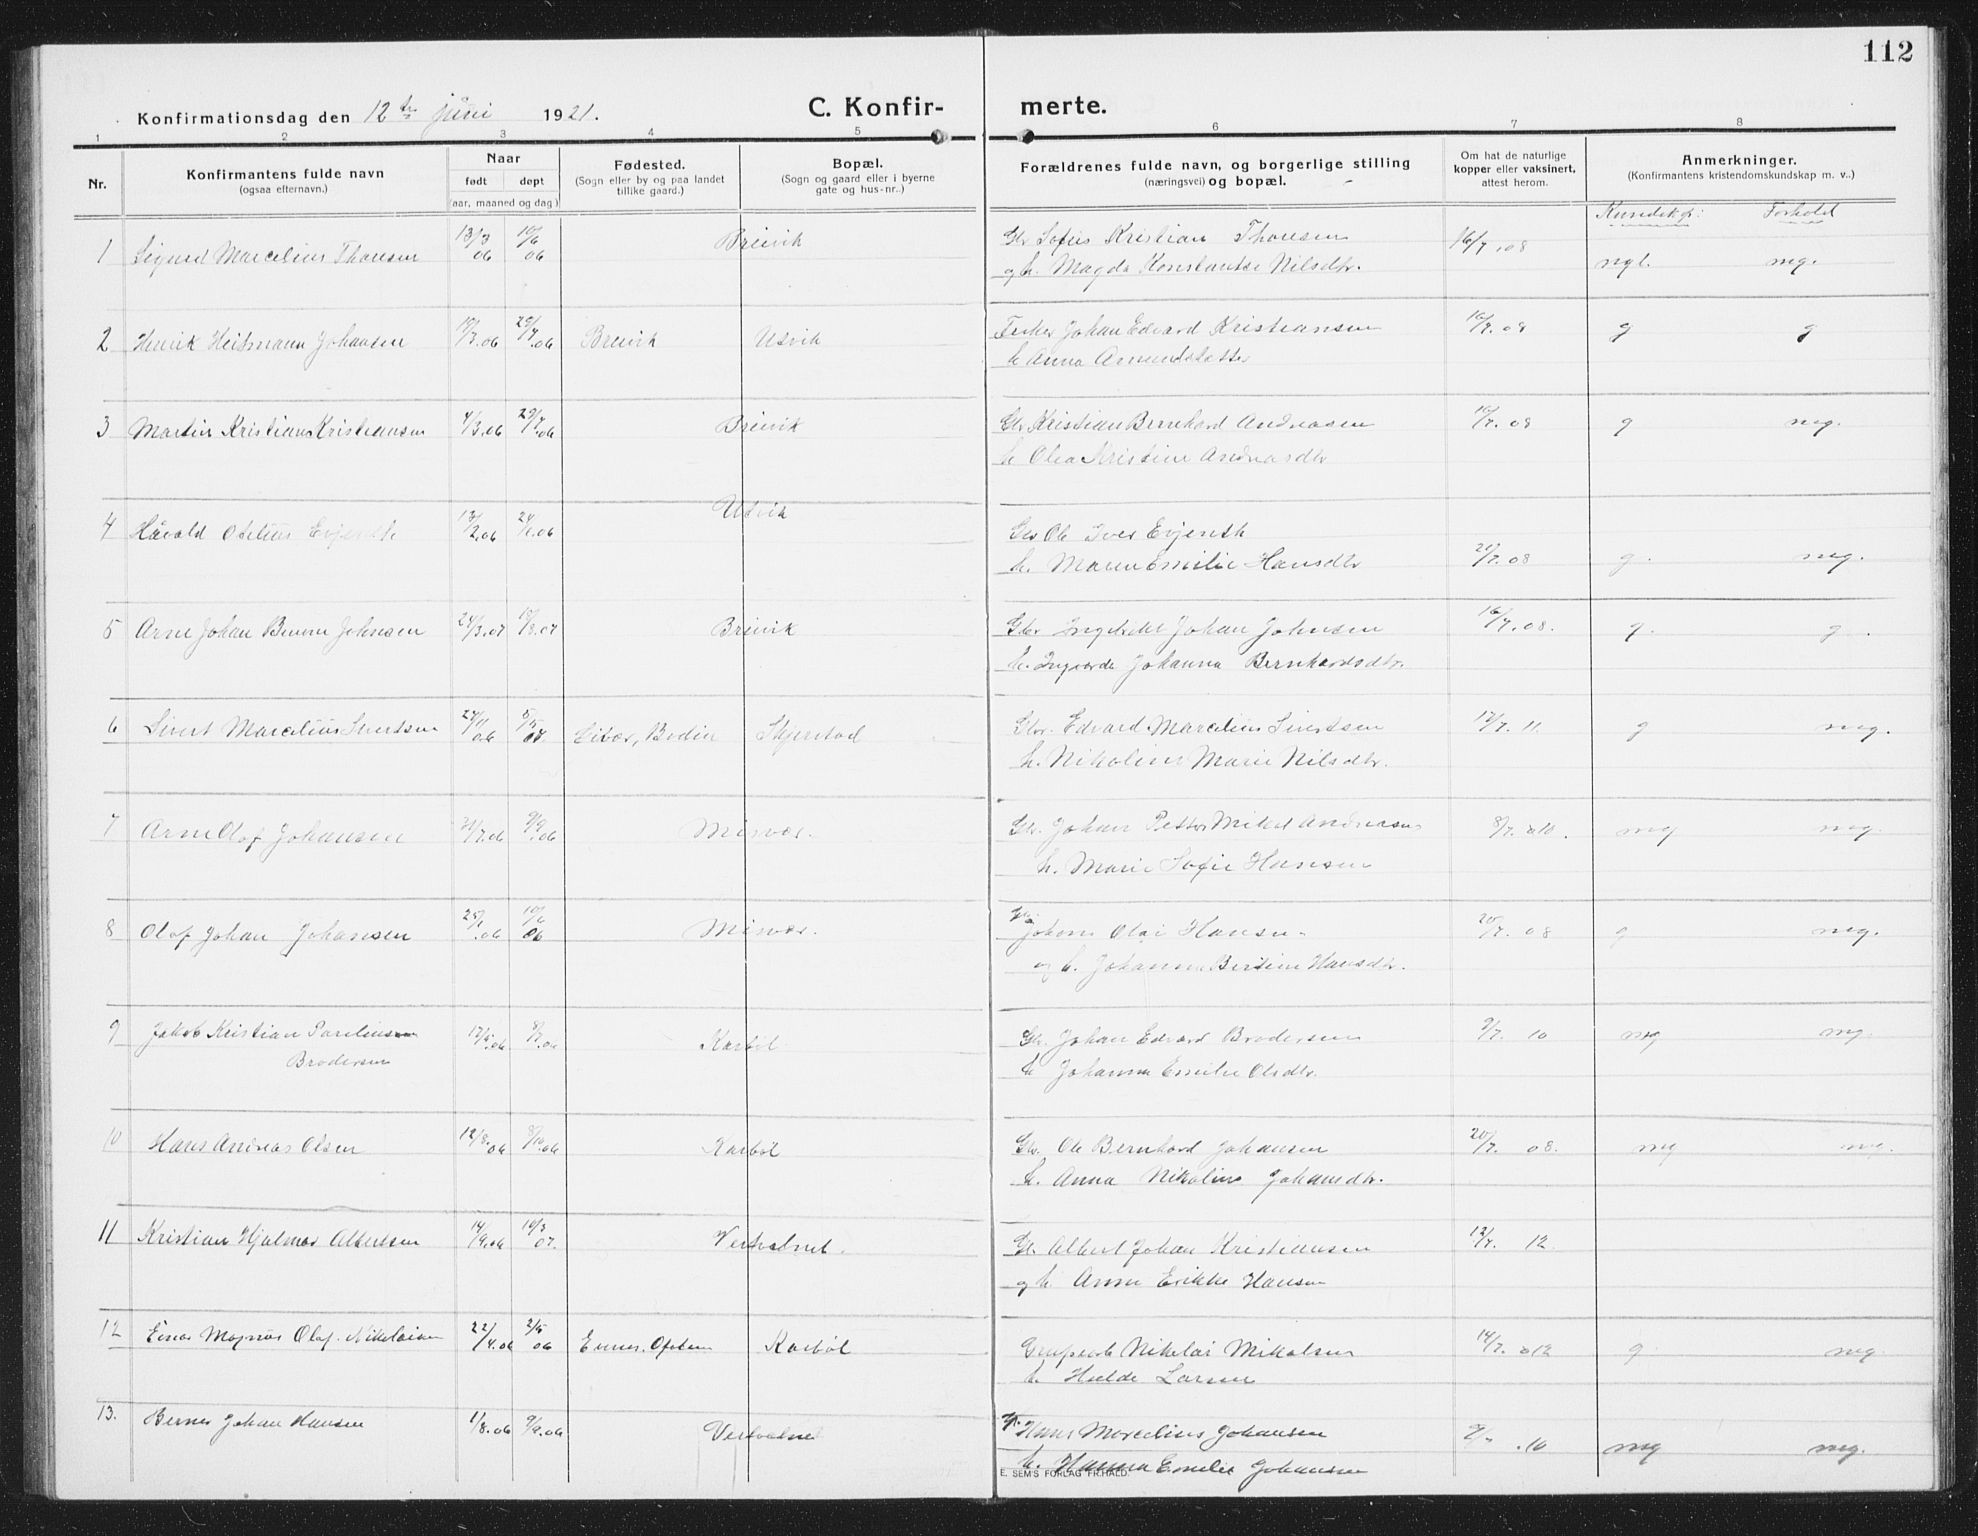 112
Konfirmationsdag den 12te juni 1921.
C. Konfirmerte.
1 2 3 4 5 6 7 8
Nr.
Konfirmantens fulde navn
(ogsaa efternavn.)
Naar
født døpt
(aar, maaned og dag)
Fødested.
(Sogn eller by og paa landet
tillike gaard.)
Bopæl.
(Sogn og gaard eller i byerne
gate og hus-nr.)
Forældrenes fulde navn, og borgerlige stilling
(næringsvei) og bopæl.
Om hat de naturlige
kopper eller vaksinert,
attest herom.
Anmerkninger.
(Konfirmantens kristendomskundskap m. v.)
Kundskap: Forhold
1 Sigurd Marcelius Thoresen 13/3 06 10/6 06 Breivik
Gbr Sofus Kristian Thoresen 16/7 .08
og h. Magda Konstantse Nilsdtr. mgt. mg.
2 Henrik Heitmann Johansen 19/3.06 29/7.06 Breivik Usvik
Fisker Johan Edvard Kristiansen 16/7.08 g g
h Anna Amundsdatter
3 Martin Kristian Kristiansen 4/3.06 29/7.06 Breivik
Gbr Kristian Bernhard Andreasen 16/7.08 g mg.
h Olea Kristine Andreasdtr
4 Havald Otelius Evjenth 13/2.06 Usvik
Gbr Ole Iver Evjenth
h. Maren Emilie Hansdtr 20/7.08 g. mg.
5 Arne Johan Johnsen 24/3.07 19/8.07 Breivik
Gbr Johan Johnsen 16/7.08. g. g.
h. Ingvarda Johanna Bernhardsdtr.
6 Sivert Marcelius Sivertsen 27/11 06 5/5 07 Bodin Skjerstad
Gbr. Edvard Marcelius Sivertsen 17/7. 11. g mg.
h. Nikoline Marie Nilsdtr.
7 Arne Olaf Johansen 31/7.06 9/9.06 Misvær.
Gbr. Johan Petter Mikal Andreasen 8/7. 010. mg mg.
h. Marie Sofie Hansen
8 Olaf Johan Johansen 25/1.06 10/6 06 Misvær.
Gbr. Johan Olai Hansen 20/7. 08 g mg.
og h. Johanna Bertine Hansdtr.
9 Jakob Kristian Paulinsen 17/4.06 8/7.06 Karbøl.
Brodersen
Gbr. Johan Edvard Brodersen 9/7. 10 mg mg.
h Johanna Emilie Olsdtr.
10 Hans Andreas Olsen 12/8.06 8/10.06 Karbøl
Gbr. Ole Bernhard Johansen 20/7. 08. mg mg.
h. Anna Nikoline Johansdtr.
11 Kristian Hjalmar Albertsen 14/9.06 10/3 07. Vestvatnet.
G. Albert Johan Kristiansen 12/7. 12.
og h Anna Erikke Hansen
12 Einar Magnus Olaf Nikolaisen 22/4.06 2/5 06 Evenes. Ofoten Karbøl
Nikolai Mikalsen 14/7. 012 g. mg.
h. Hulde Larsen
13. Berner Johan Hansen 1/8.06 9/9.06 Vestvatnet
Hans Marcelius Johansen 9/7 .10 mg mg.
h. Hanna Emilie Johansen
E. SEM'S FORLAG FR.HALD.